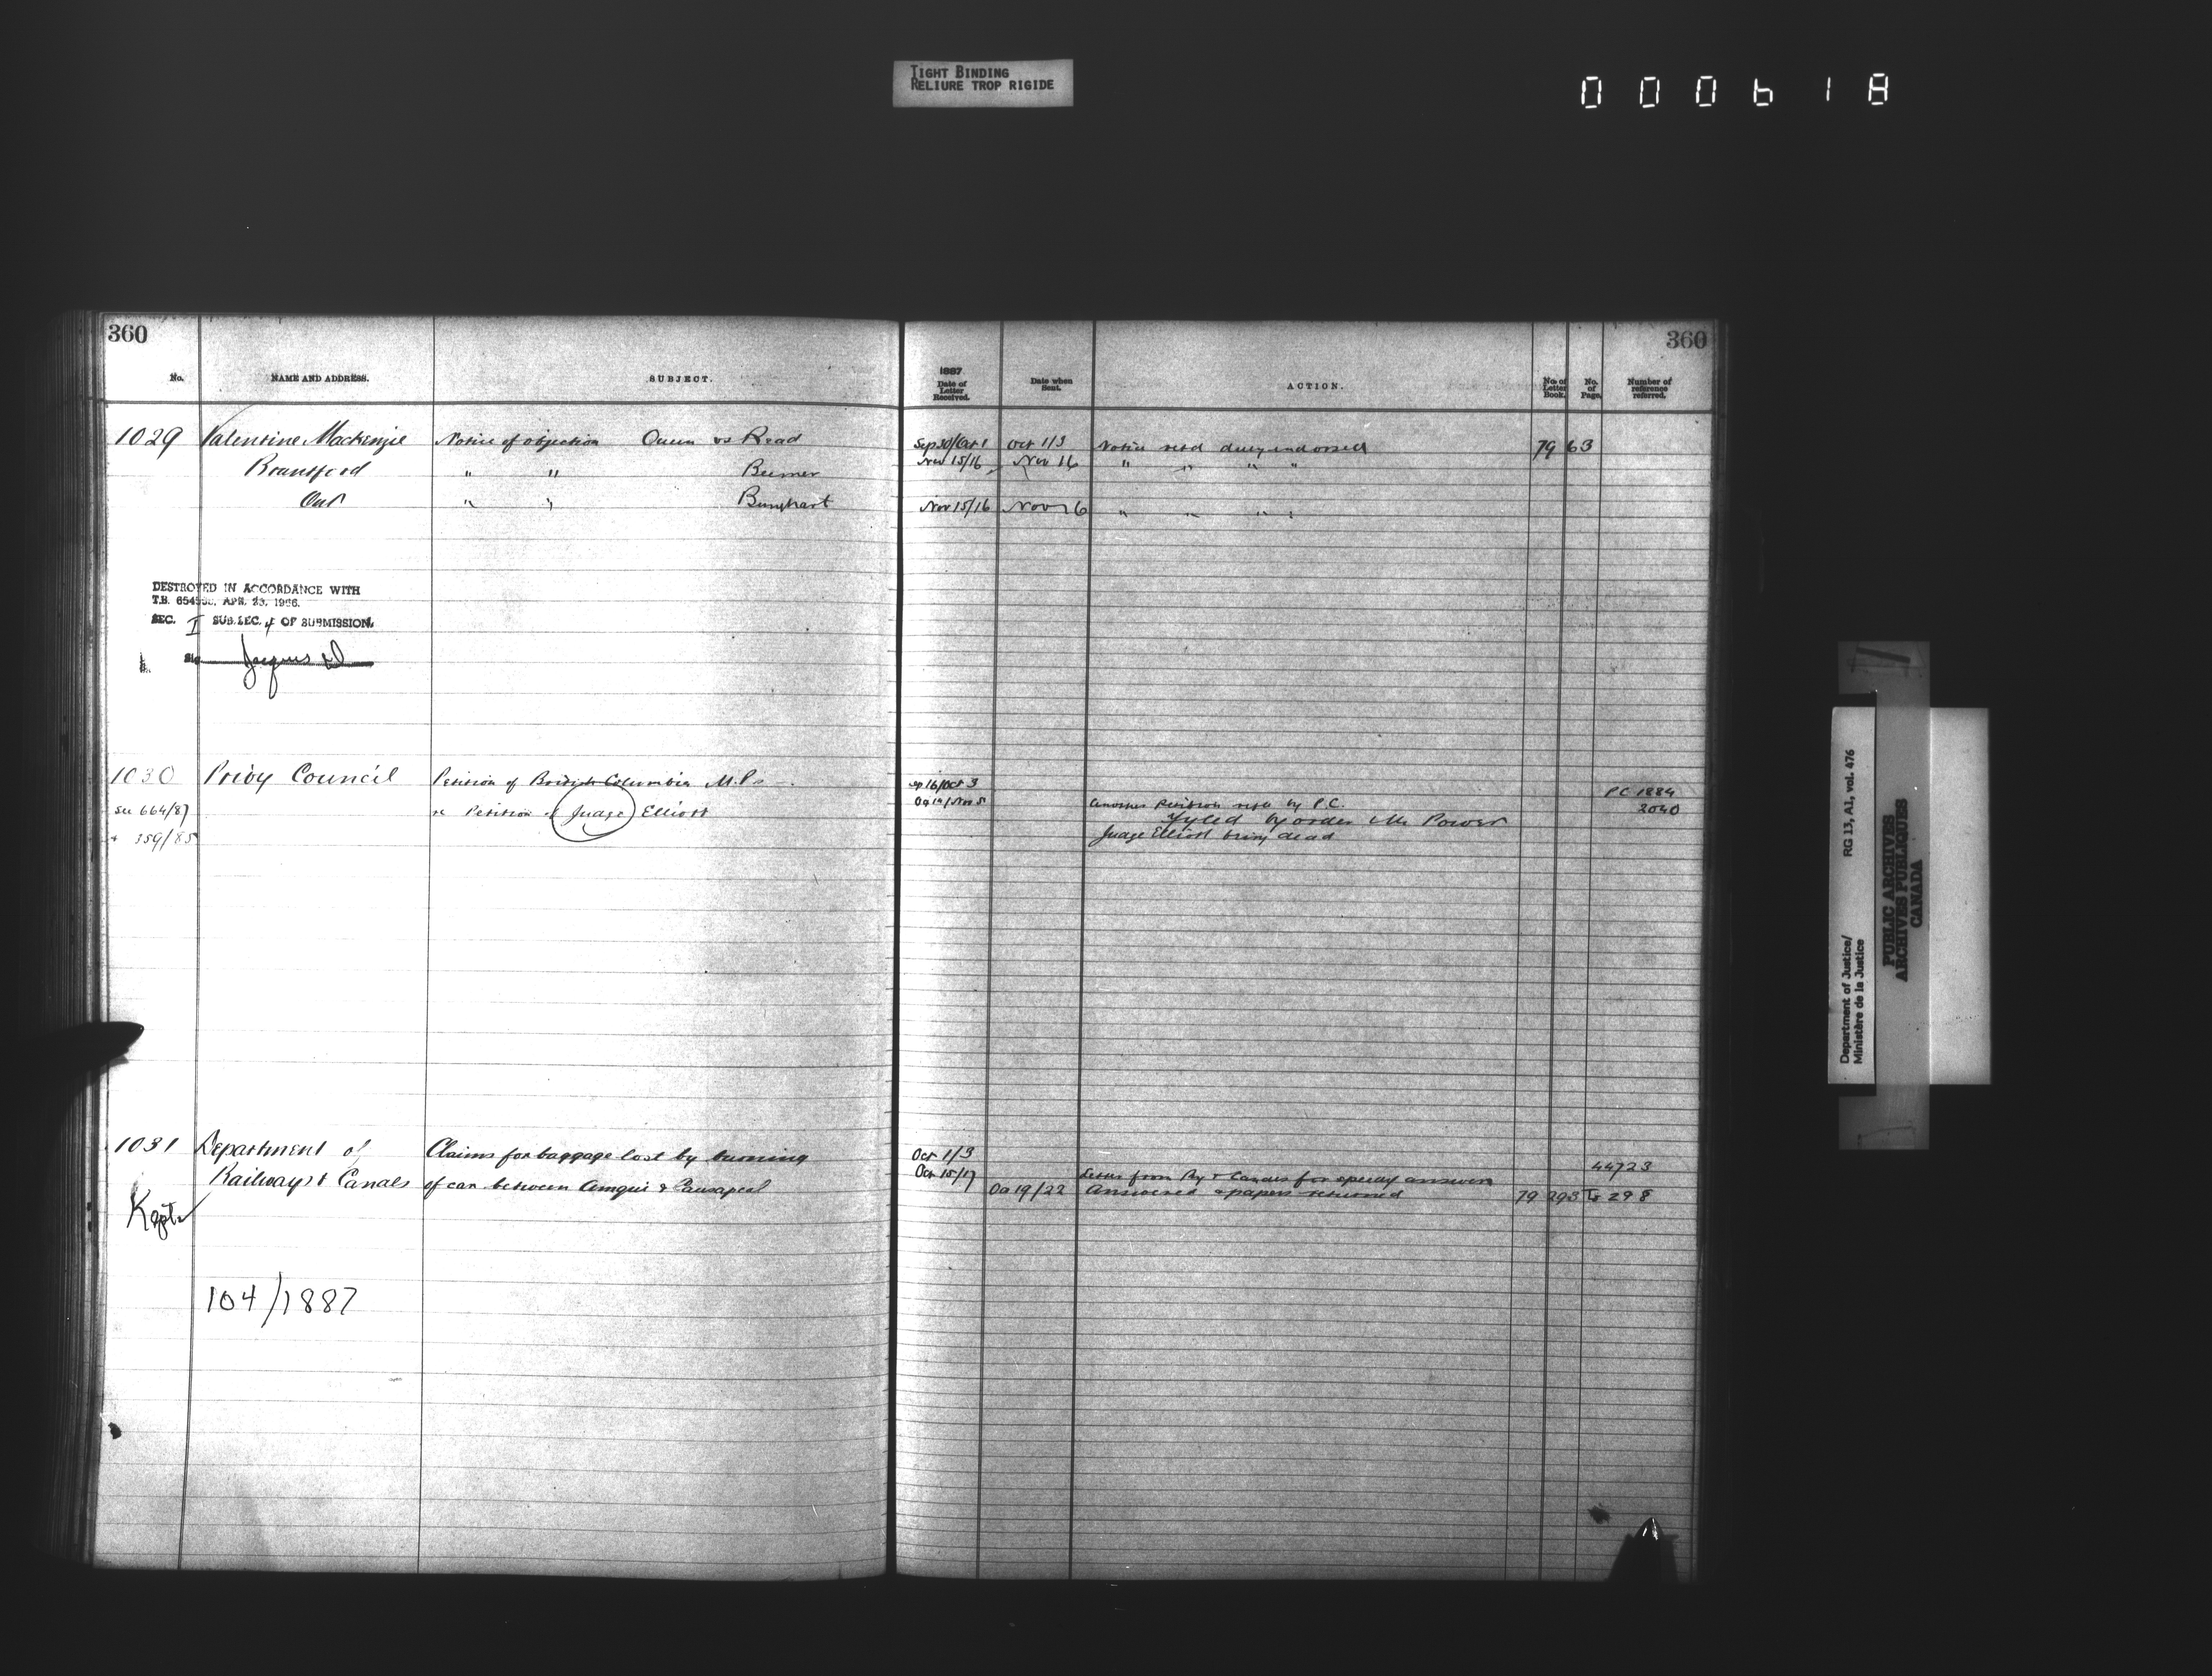 TIGHT BINDING
RELIURE TROP RIGIDE
000618
360
No.
NAME AND ADDRESS.
SUBJECT.
1029 Valentine Mackenzie Notice of objection Queen vs Read
Brantford " " Beemer
Ont " "
DESTROYED IN ACCORDANCE WITH
T.B. APR. 23, 1966.
SEC. I SUB. SEC. 4 OF SUBMISSION.
Jacques
1030 Privy Council Petition of British Columbia M.Ps
See 664/87 re Petition of Judge Elliott
+ 359/85
1031 Department of Claims for baggage lost by burning
Railways & Canals of car between Amqui & Causapscal
Kept
104/1887
360
1887
Date of Letter Received.
Date when Sent.
ACTION.
No. of Letter Book.
No. of Page.
Number of reference referred.
Sep 30/Oct 1 Oct 1/3 Notice retd duly endorsed 79 63
Nov 15/16 Nov 16 " " " "
Nov 15/16 Nov 16 " " " "
Sep 16/Oct 3 PC 1884
Another Petition by P.C. 2040
Fyled by order Mr Power
Judge Elliott being dead
Oct 1/3 44723
Oct 15/17 Letter from Ry & Canals for speedy answer
Oct 19/22 Answered & papers returned 79 293 to 298
Department of Justice/
Ministère de la Justice
RG 13, A1, vol. 476
PUBLIC ARCHIVES
ARCHIVES PUBLIQUES
CANADA